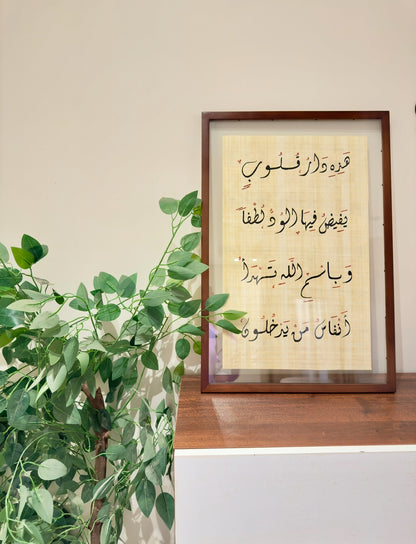 هَذِهِ دَارُ قُلُوبٍ
يَفِيضُ فِيهَا الوُدُّ لُطْفاً
وَبِاسْمِ اللَّهِ تَهْدَأُ
أَنْفَاسُ مَن يَدْخُلُونَ